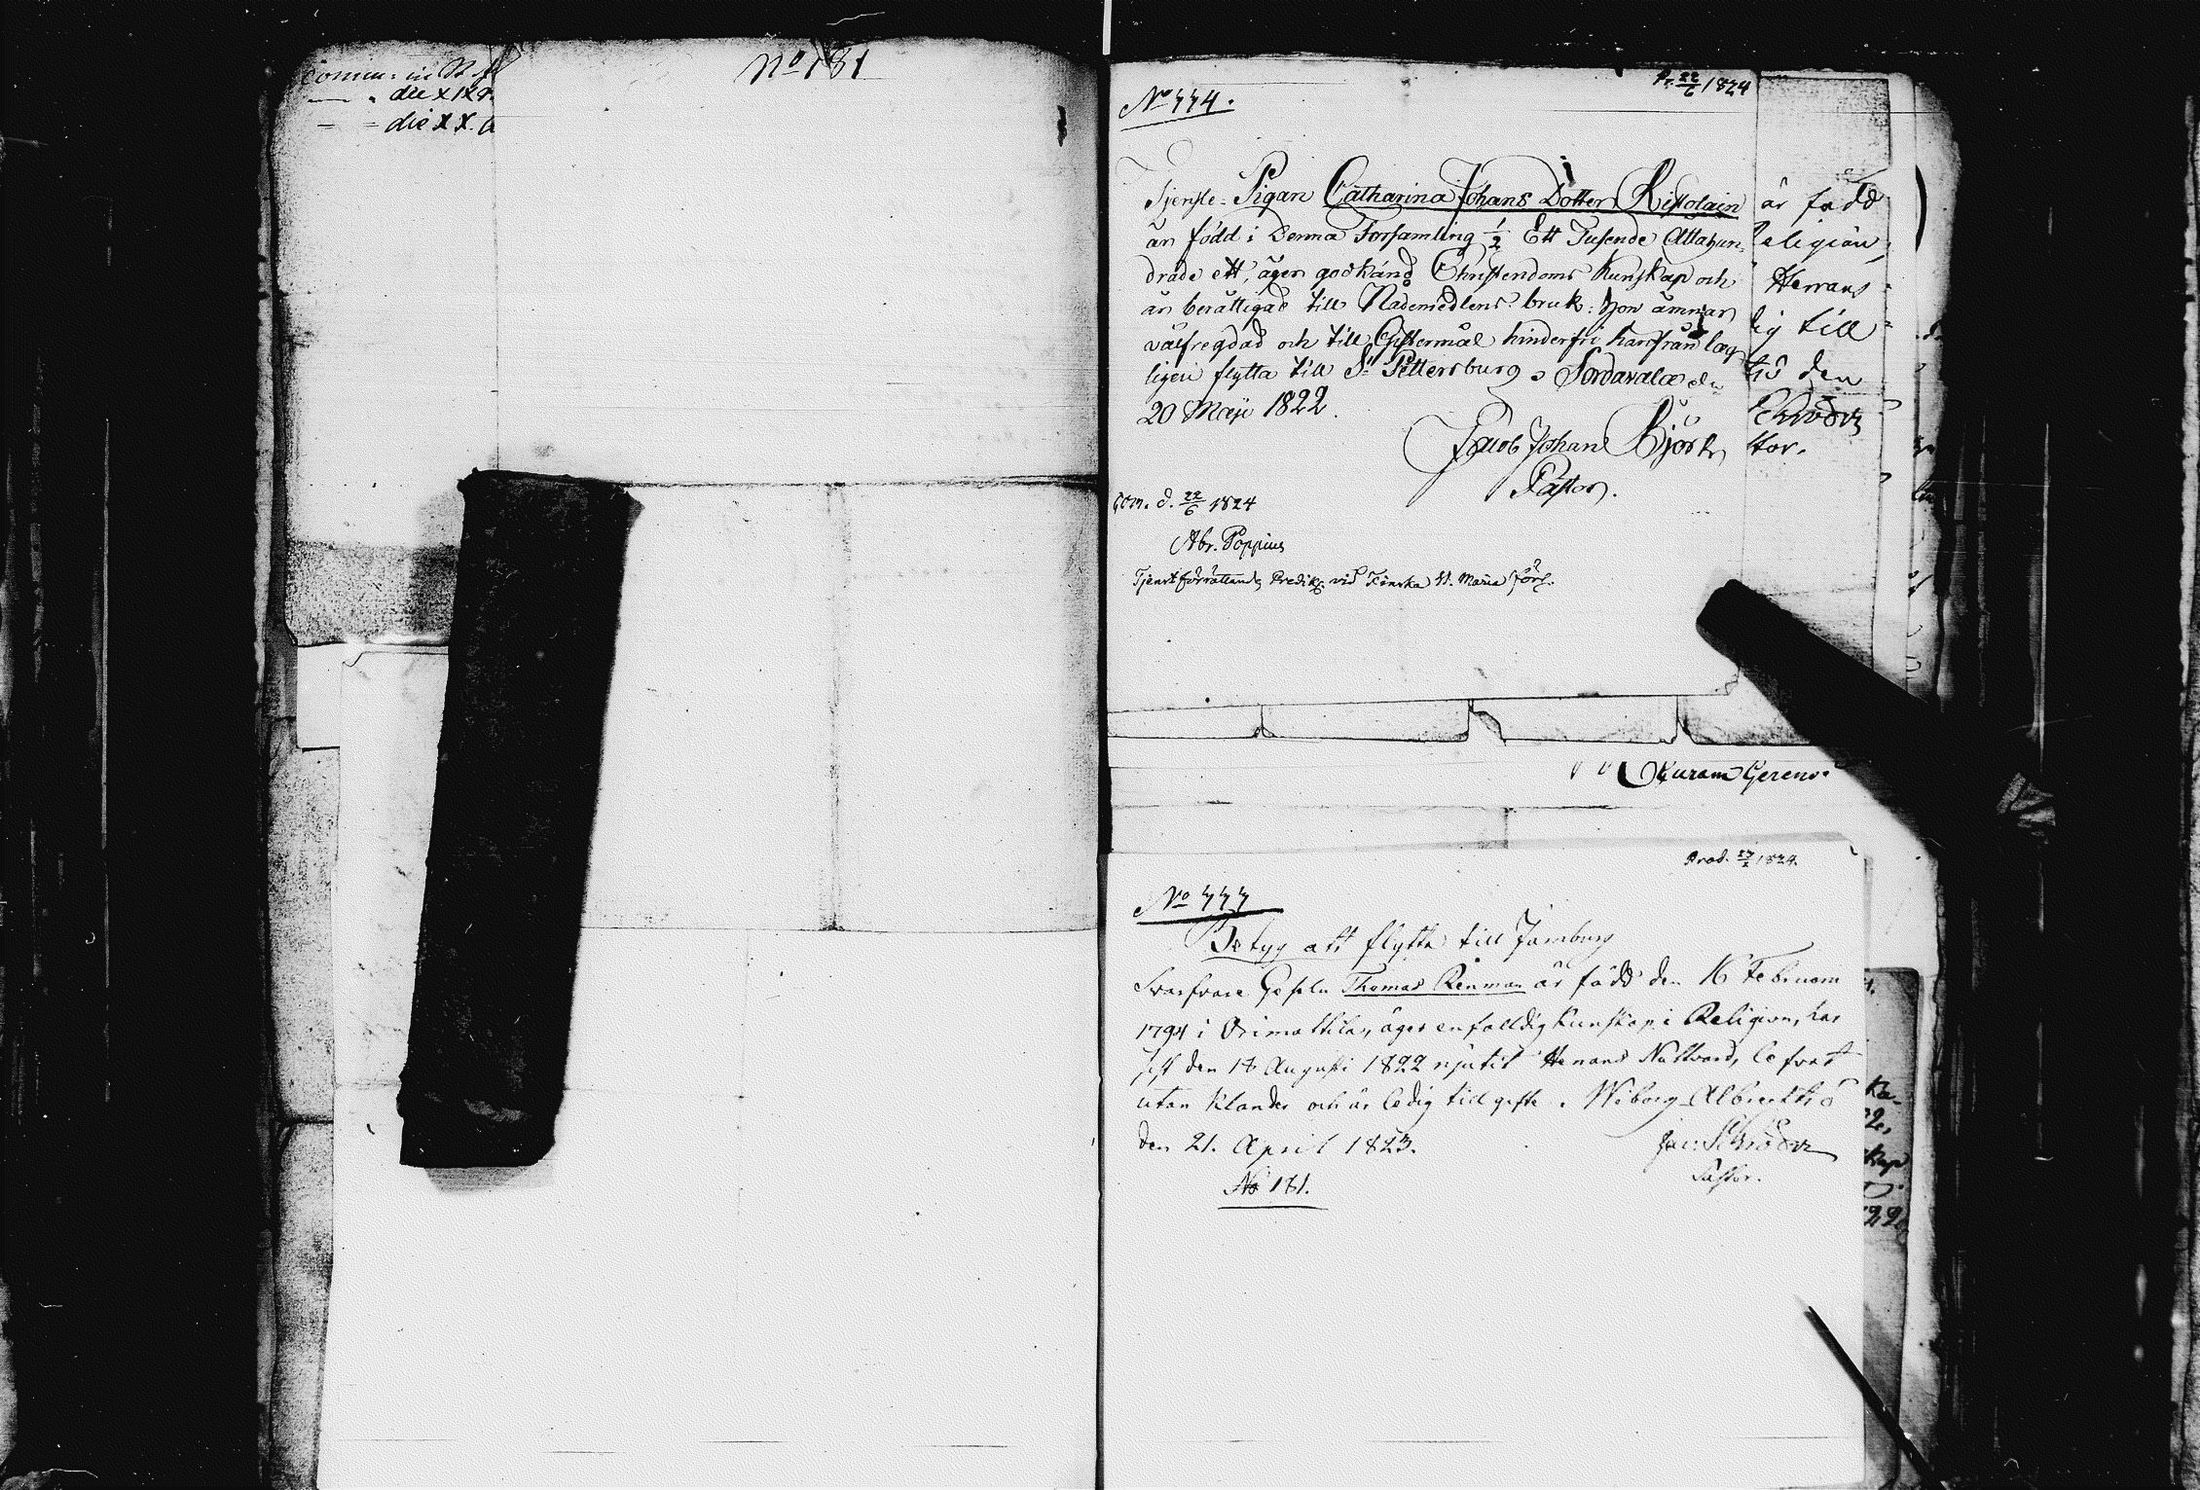 Commu: in
die XIX p.
die XX. a
No 181
Pr. 22/6 1824
No 554.
Tjenste-Pigan Catharina Johans Dotter Ristolain
är född i Denna Församling 1/2 Ett Tusende Ottahun-
drade ett, äger godkänd Christendoms Kunskap och
är berättigad till Nådemedlens bruk: hon ämnar
välfregdad och till Ägtermål hinderfri härifrån lag
ligen flytta till St Pettersburg; Sordavala den
20 Maji 1822.
Jacob Johan Björk
Pastor.
Com. d. 22/6 1824
Abr. Poppius
Tjenstförrättande Predik. vid Finska St. Maria Förs.
är född
Religion,
Herrans
dig till
den
Schröder
stor.
Curam Gerens.
Prod. 1824.
No 555
Betyg att flytta till Jamburg
Svarfvare Gesäln Thomas Renman är född den 16 Februari
1794 i Orimattila, äger enfalldig Kunskap i Religion, har
sist den 18 Augusti 1822 njutit Herrans Nattvard, lefvat
utan klander och är ledig till gifte. Wiborg Albrecktsö
den 21. April 1823.
Jac: Schröder
Pastor.
No 181.